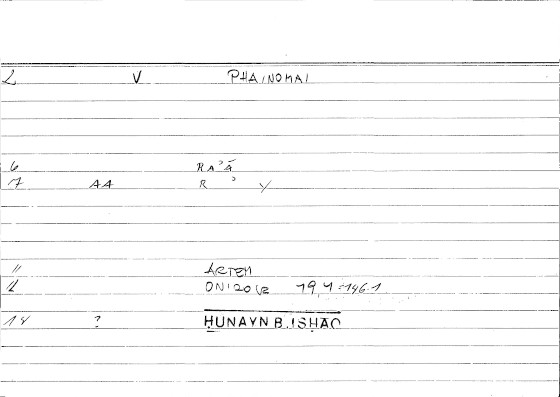 2 V PHAINOMAI
6 RAʾĀ
7 AA R ʾ Y
11 ARTEM
12 ONIROCR 19,4=146.1
14 ? HUNAYN B. ISHAQ